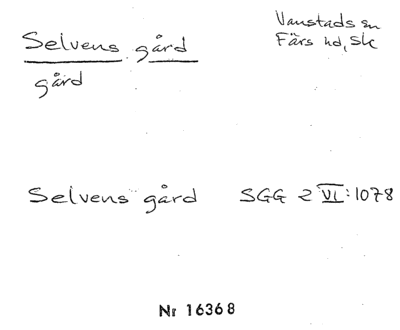 Vanstads sn
Färs hd, Sk
Selvens gård
gård
Selvens gård SGG 2 VI:1078
Nr 16368